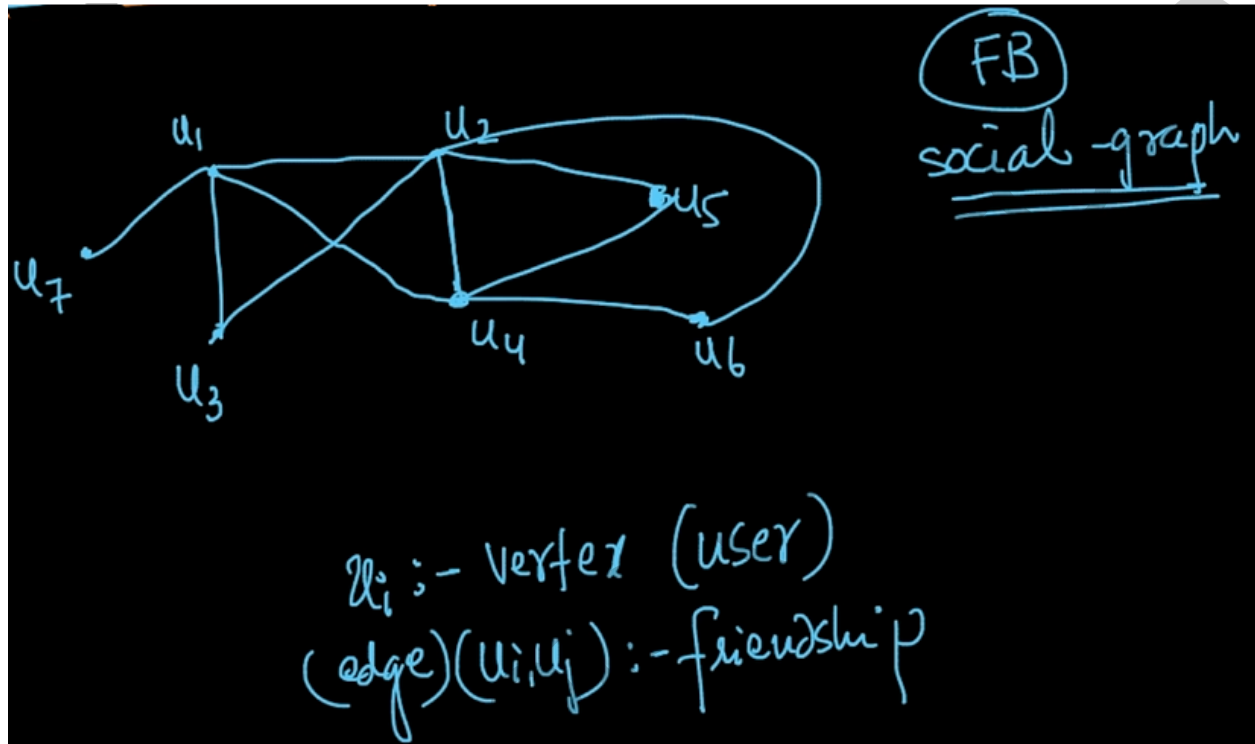 FB
social-graph
u1
u2
u5
u7
u4
u6
u3
ui :- vertex (user)
(edge)(ui,uj) :- friendship